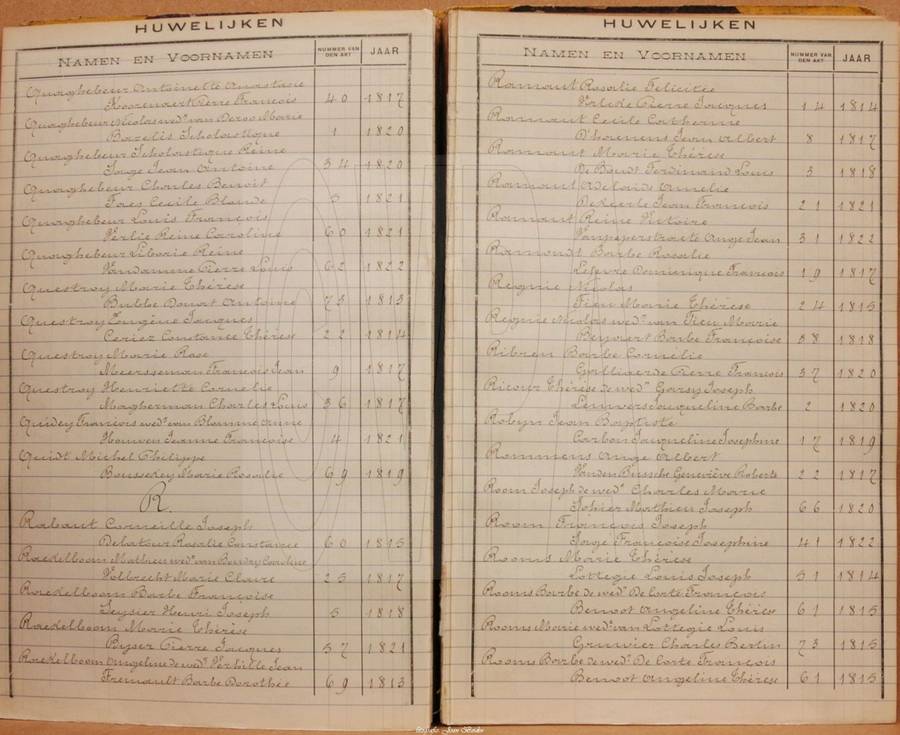 HUWELIJKEN
NAMEN EN VOORNAMEN NUMMER VAN DEN AKT JAAR
Quaghebeur Antoinette Anastasie
Noorenaert Pierre Francois 40 1817
Quaghebeur Nicolas wedr van Deroo Marie
Bazelis Scholastique 1 1820
Quaghebeur Scholastique Reine
Sarge Jean Antoine 34 1820
Quaghebeur Charles Benoit
Fores Cecile Blande 5 1821
Quaghebeur Louis Francois
Verlie Reine Caroline 60 1821
Quaghebeur Liborie Reine
Vandamme Pierre Louis 62 1822
Questroy Marie Thérèse
Bubbe Donat Antoine 73 1813
Questroy Eugène Jacques
Ceriez Constance Thérèse 22 1814
Questroy Marie Rose
Meersseman Francois Jean 9 1817
Questroy Henriette Cornelie
Magherman Charles Louis 36 1817
Quidey Francois wedr van Blomme Anne
Houwen Jeanne Francoise 4 1821
Quidt Michel Philippe
Boussekey Marie Rosalie 69 1819
R.
Rabaut Corneille Joseph
Delatur Rosalie Constance 60 1815
Raedelboom Mathieu wedr van Baudry Caroline
Volbrecht Marie Claire 25 1817
Raedelboom Barbe Françoise
Seysier Henri Joseph 5 1818
Raedelboom Marie Thérèse
Byser Pierre Jacques 57 1821
Raedelboom Angeline de wede Verbille Jean
Fremault Barbe Dorothée 69 1813
HUWELIJKEN
NAMEN EN VOORNAMEN NUMMER VAN DEN AKT JAAR
Ramaut Rosalie Felicitée
Verlide Pierre Jacques 14 1814
Ramaut Cecile Catherine
D'houwens Jean Albert 8 1817
Ramaut Marie Thérèse
De Baudt Ferdinand Louis 3 1818
Ramaut Adelaide Amelie
Dekeerle Jean Francois 21 1821
Ramaut Reine Victoire
Vanpeperstraete Ange Jean 31 1822
Ramondt Barbe Rosalie
Lefevre Dominique Francois 19 1817
Regnie Nicolas
Tieu Marie Thérèse 24 1815
Regnie Nicolas wedr van Tieu Marie
Beyaert Barbe Françoise 58 1818
Ribren Barbe Cornélie
Galliaerde Pierre Francois 37 1820
Ricour Thérèse de wede Garsy Joseph
Leuwers Jacqueline Barbe 2 1820
Robyn Jean Baptiste
Carbon Jacqueline Josephine 17 1819
Rommens Ange Albert
Vanden Bussche Geneviève Roberte 22 1817
Room Joseph de wede Charles Marie
Johier Mathieu Joseph 66 1820
Room François Joseph
Sarge Françoise Josephine 41 1822
Rooms Marie Thérèse
Lottegie Louis Joseph 51 1814
Rooms Barbe de wede De Corte Francois
Benoot Angeline Thérèse 61 1815
Rooms Marie wede van Lottegie Louis
Gruwier Charles Bertin 73 1815
Rooms Barbe de wede De Corte François
Benoot Angeline Thérèse 61 1815